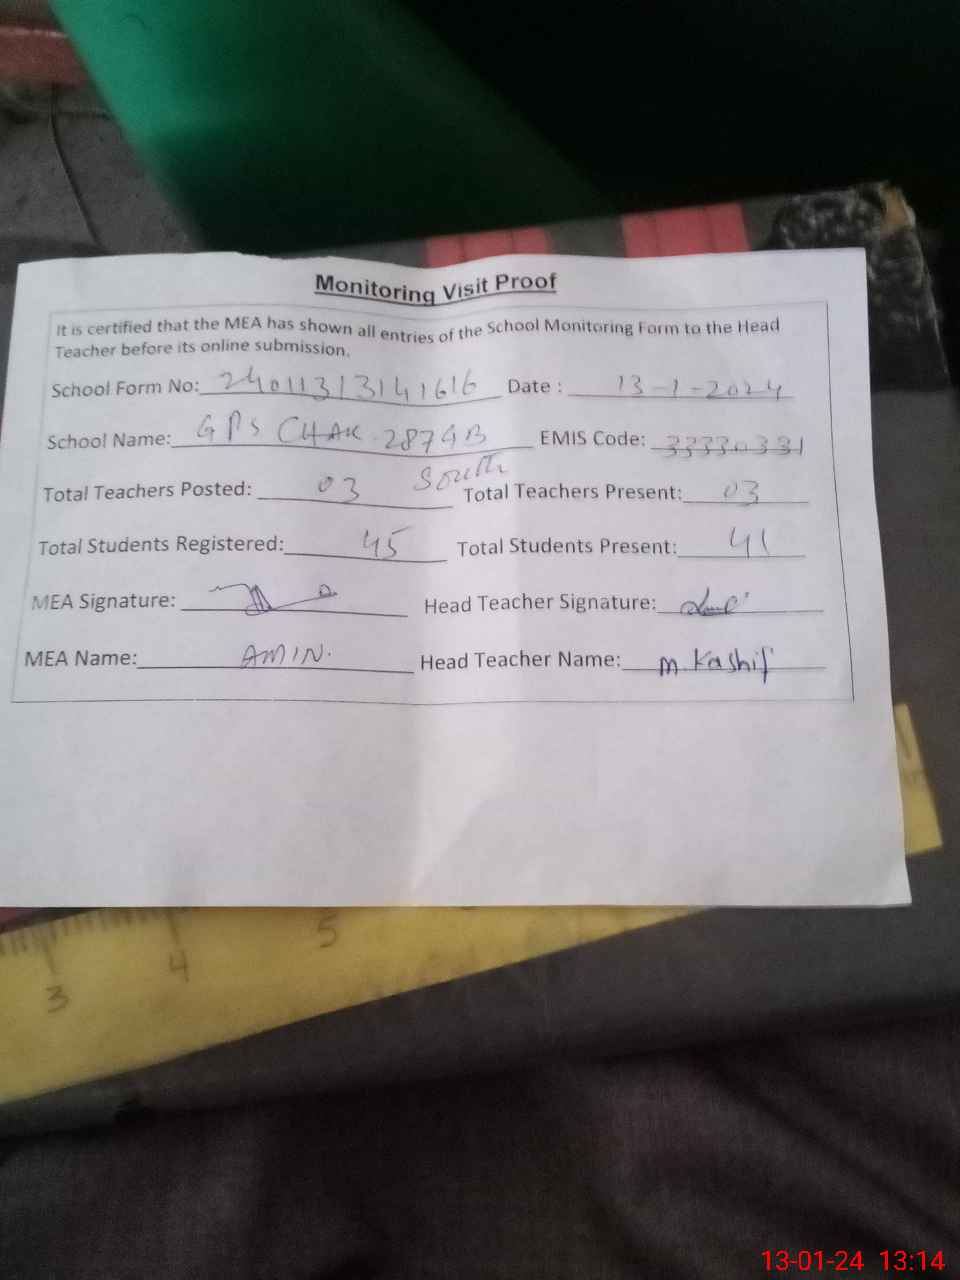 Monitoring Visit Proof
It is certified that the MEA has shown all entries of the School Monitoring Form to the Head
Teacher before its online submission.
School Form No: 24011313141616 Date : 13-1-2024
School Name: GPS CHAK 287GB EMIS Code: 33330331
South
Total Teachers Posted: 03 Total Teachers Present: 03
Total Students Registered: 45 Total Students Present: 41
MEA Signature: Head Teacher Signature:
MEA Name: AMIN. Head Teacher Name: M Kashif
3 4 5
13-01-24 13:14